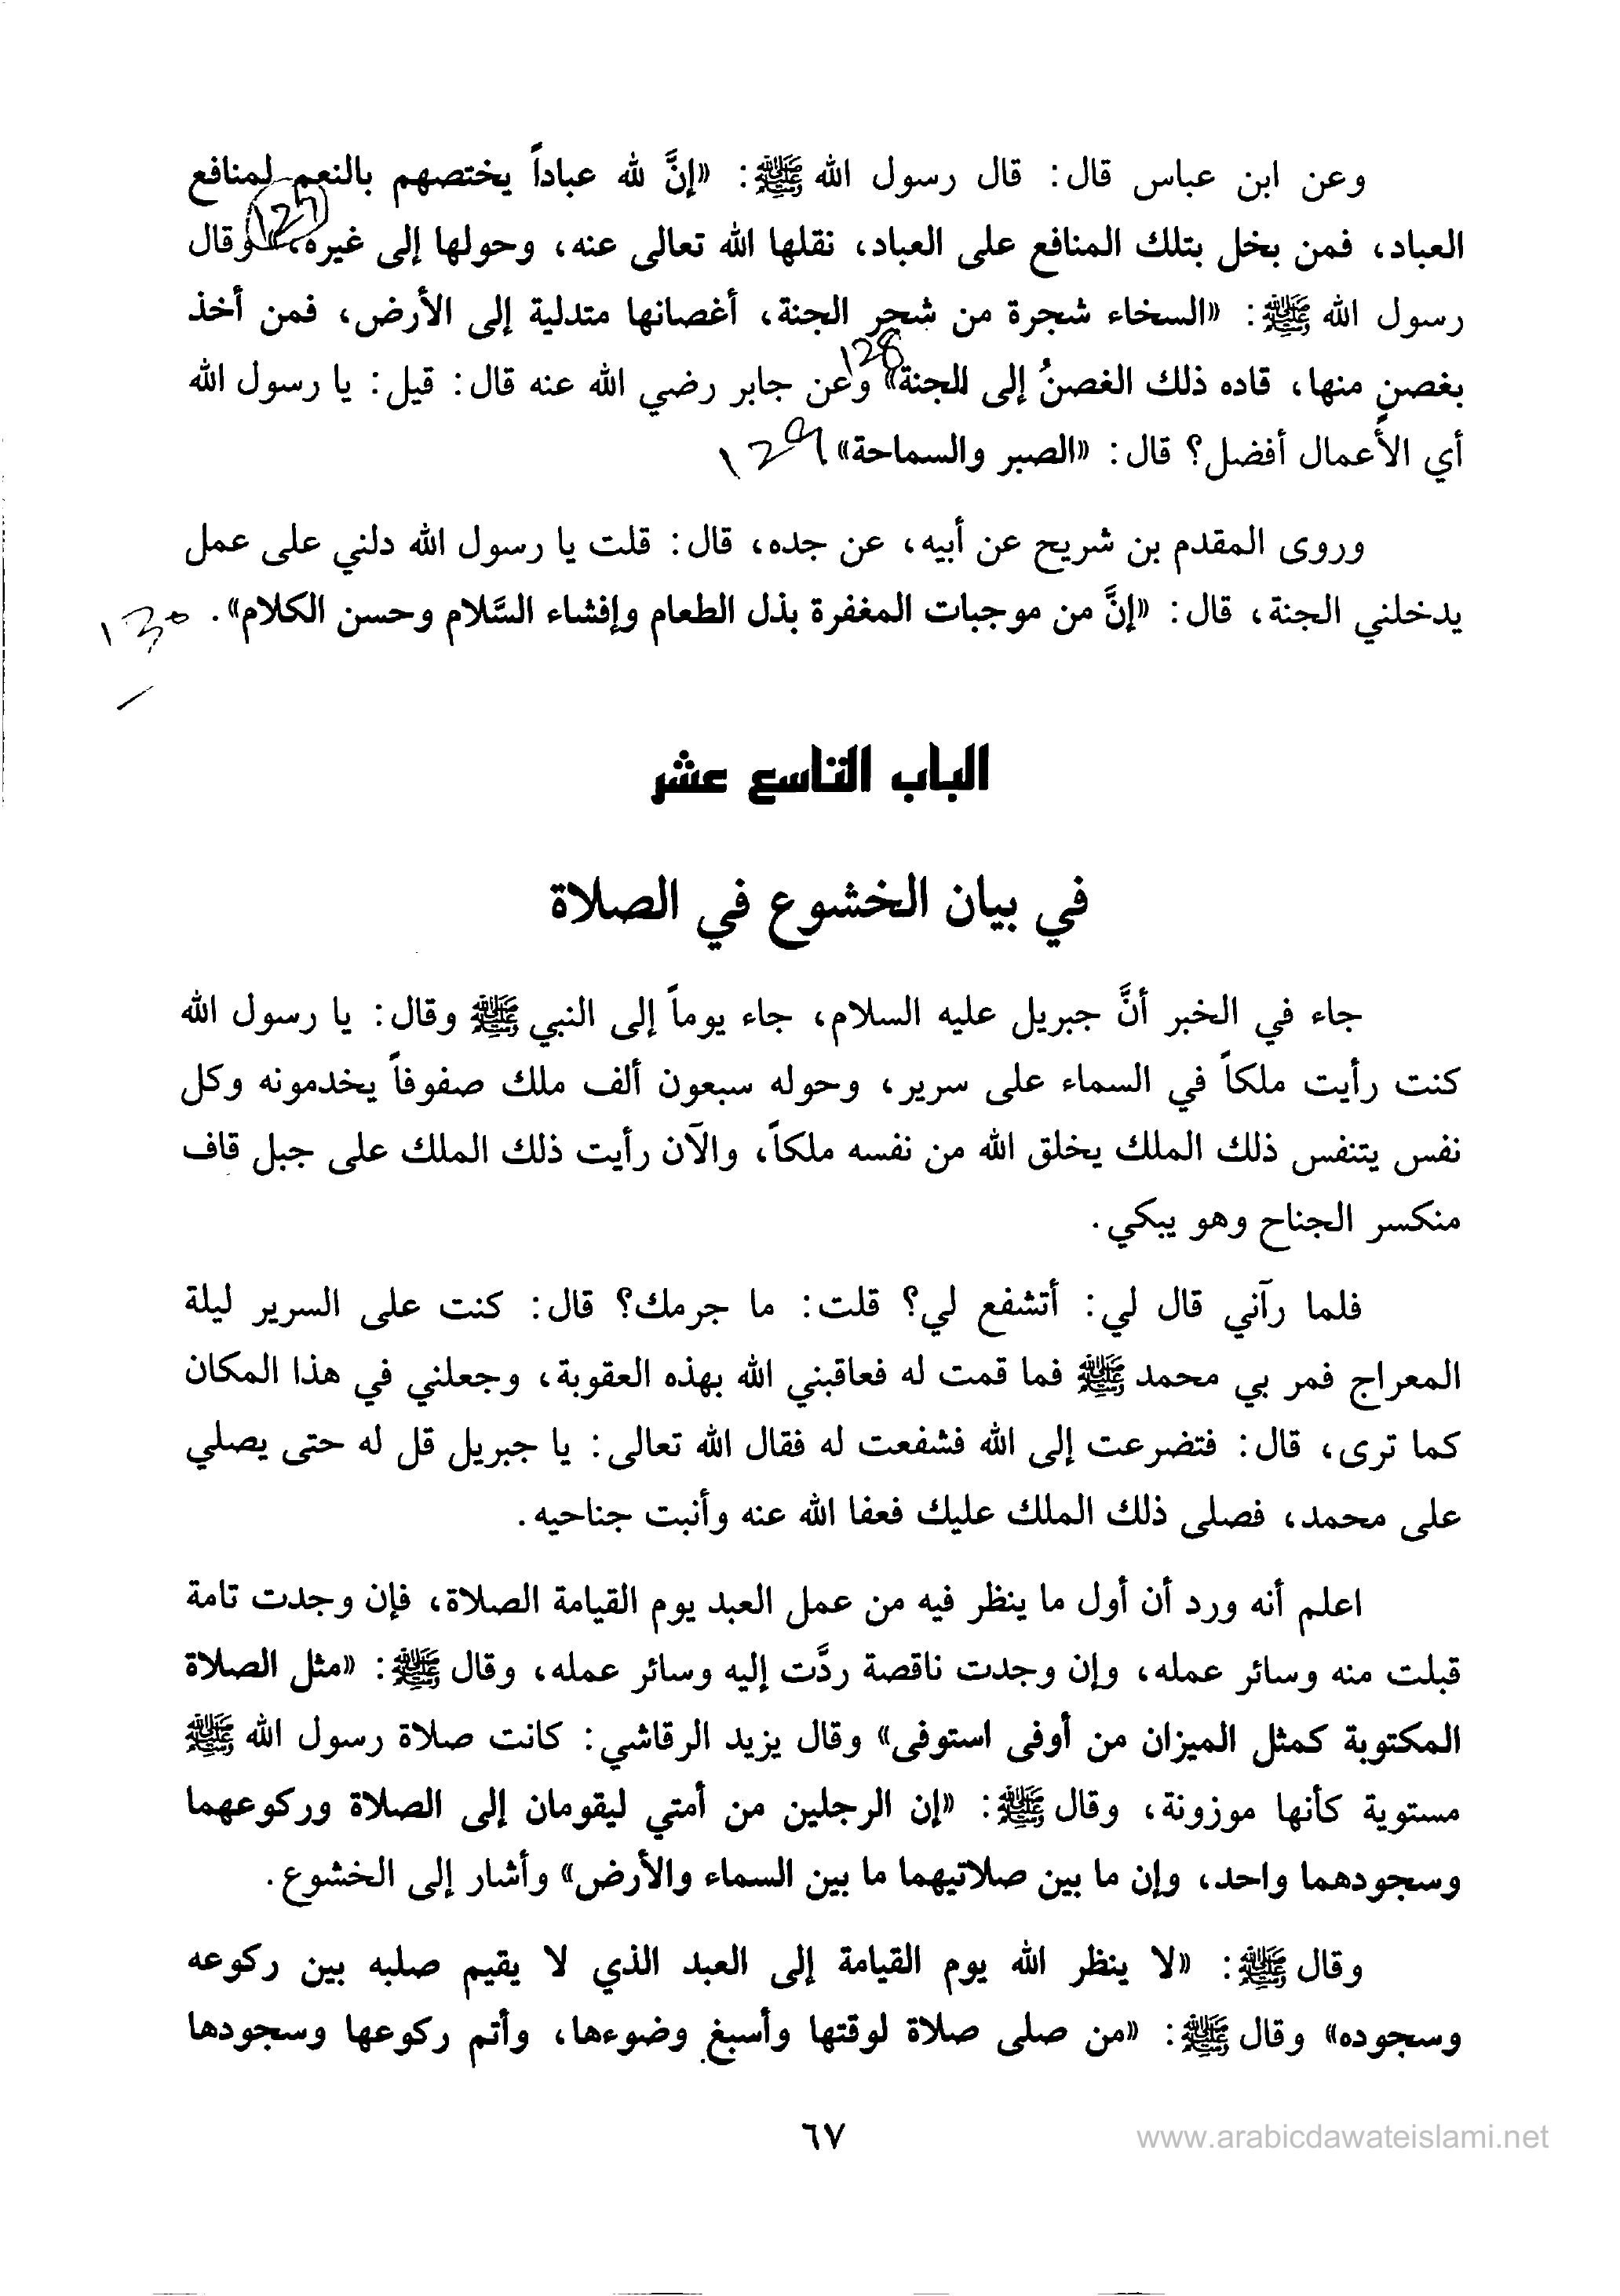 وعن ابن عباس قال: قال رسول الله ﷺ: «إنَّ لله عباداً يختصهم بالنعم لمنافع
العباد، فمن بخل بتلك المنافع على العباد، نقلها الله تعالى عنه، وحولها إلى غيره» وقال
رسول الله ﷺ: «السخاء شجرة من شجر الجنة، أغصانها متدلية إلى الأرض، فمن أخذ
128
بغصنٍ منها، قاده ذلك الغصنُ إلى الجنة» وعن جابر رضي الله عنه قال: قيل: يا رسول الله
أي الأعمال أفضل؟ قال: «الصبر والسماحة» 129
وروى المقدم بن شريح عن أبيه، عن جده، قال: قلت يا رسول الله دلني على عمل
يدخلني الجنة، قال: «إنَّ من موجبات المغفرة بذل الطعام وإفشاء السَّلام وحسن الكلام». 130
الباب التاسع عشر
في بيان الخشوع في الصلاة
جاء في الخبر أنَّ جبريل عليه السلام، جاء يوماً إلى النبي ﷺ وقال: يا رسول الله
كنت رأيت ملكاً في السماء على سرير، وحوله سبعون ألف ملك صفوفاً يخدمونه وكل
نفس يتنفس ذلك الملك يخلق الله من نفسه ملكاً، والآن رأيت ذلك الملك على جبل قاف
منكسر الجناح وهو يبكي.
فلما رآني قال لي: أتشفع لي؟ قلت: ما جرمك؟ قال: كنت على السرير ليلة
المعراج فمر بي محمد ﷺ فما قمت له فعاقبني الله بهذه العقوبة، وجعلني في هذا المكان
كما ترى، قال: فتضرعت إلى الله فشفعت له فقال الله تعالى: يا جبريل قل له حتى يصلي
على محمد، فصلى ذلك الملك عليك فعفا الله عنه وأنبت جناحيه.
اعلم أنه ورد أن أول ما ينظر فيه من عمل العبد يوم القيامة الصلاة، فإن وجدت تامة
قبلت منه وسائر عمله، وإن وجدت ناقصة ردَّت إليه وسائر عمله، وقال ﷺ: «مثل الصلاة
المكتوبة كمثل الميزان من أوفى استوفى» وقال يزيد الرقاشي: كانت صلاة رسول الله ﷺ
مستوية كأنها موزونة، وقال ﷺ: «إن الرجلين من أمتي ليقومان إلى الصلاة وركوعهما
وسجودهما واحد، وإن ما بين صلاتيهما ما بين السماء والأرض» وأشار إلى الخشوع.
وقال ﷺ: «لا ينظر الله يوم القيامة إلى العبد الذي لا يقيم صلبه بين ركوعه
وسجوده» وقال ﷺ: «من صلى صلاة لوقتها وأسبغ وضوءها، وأتم ركوعها وسجودها
٦٧
www.arabicdawateislami.net